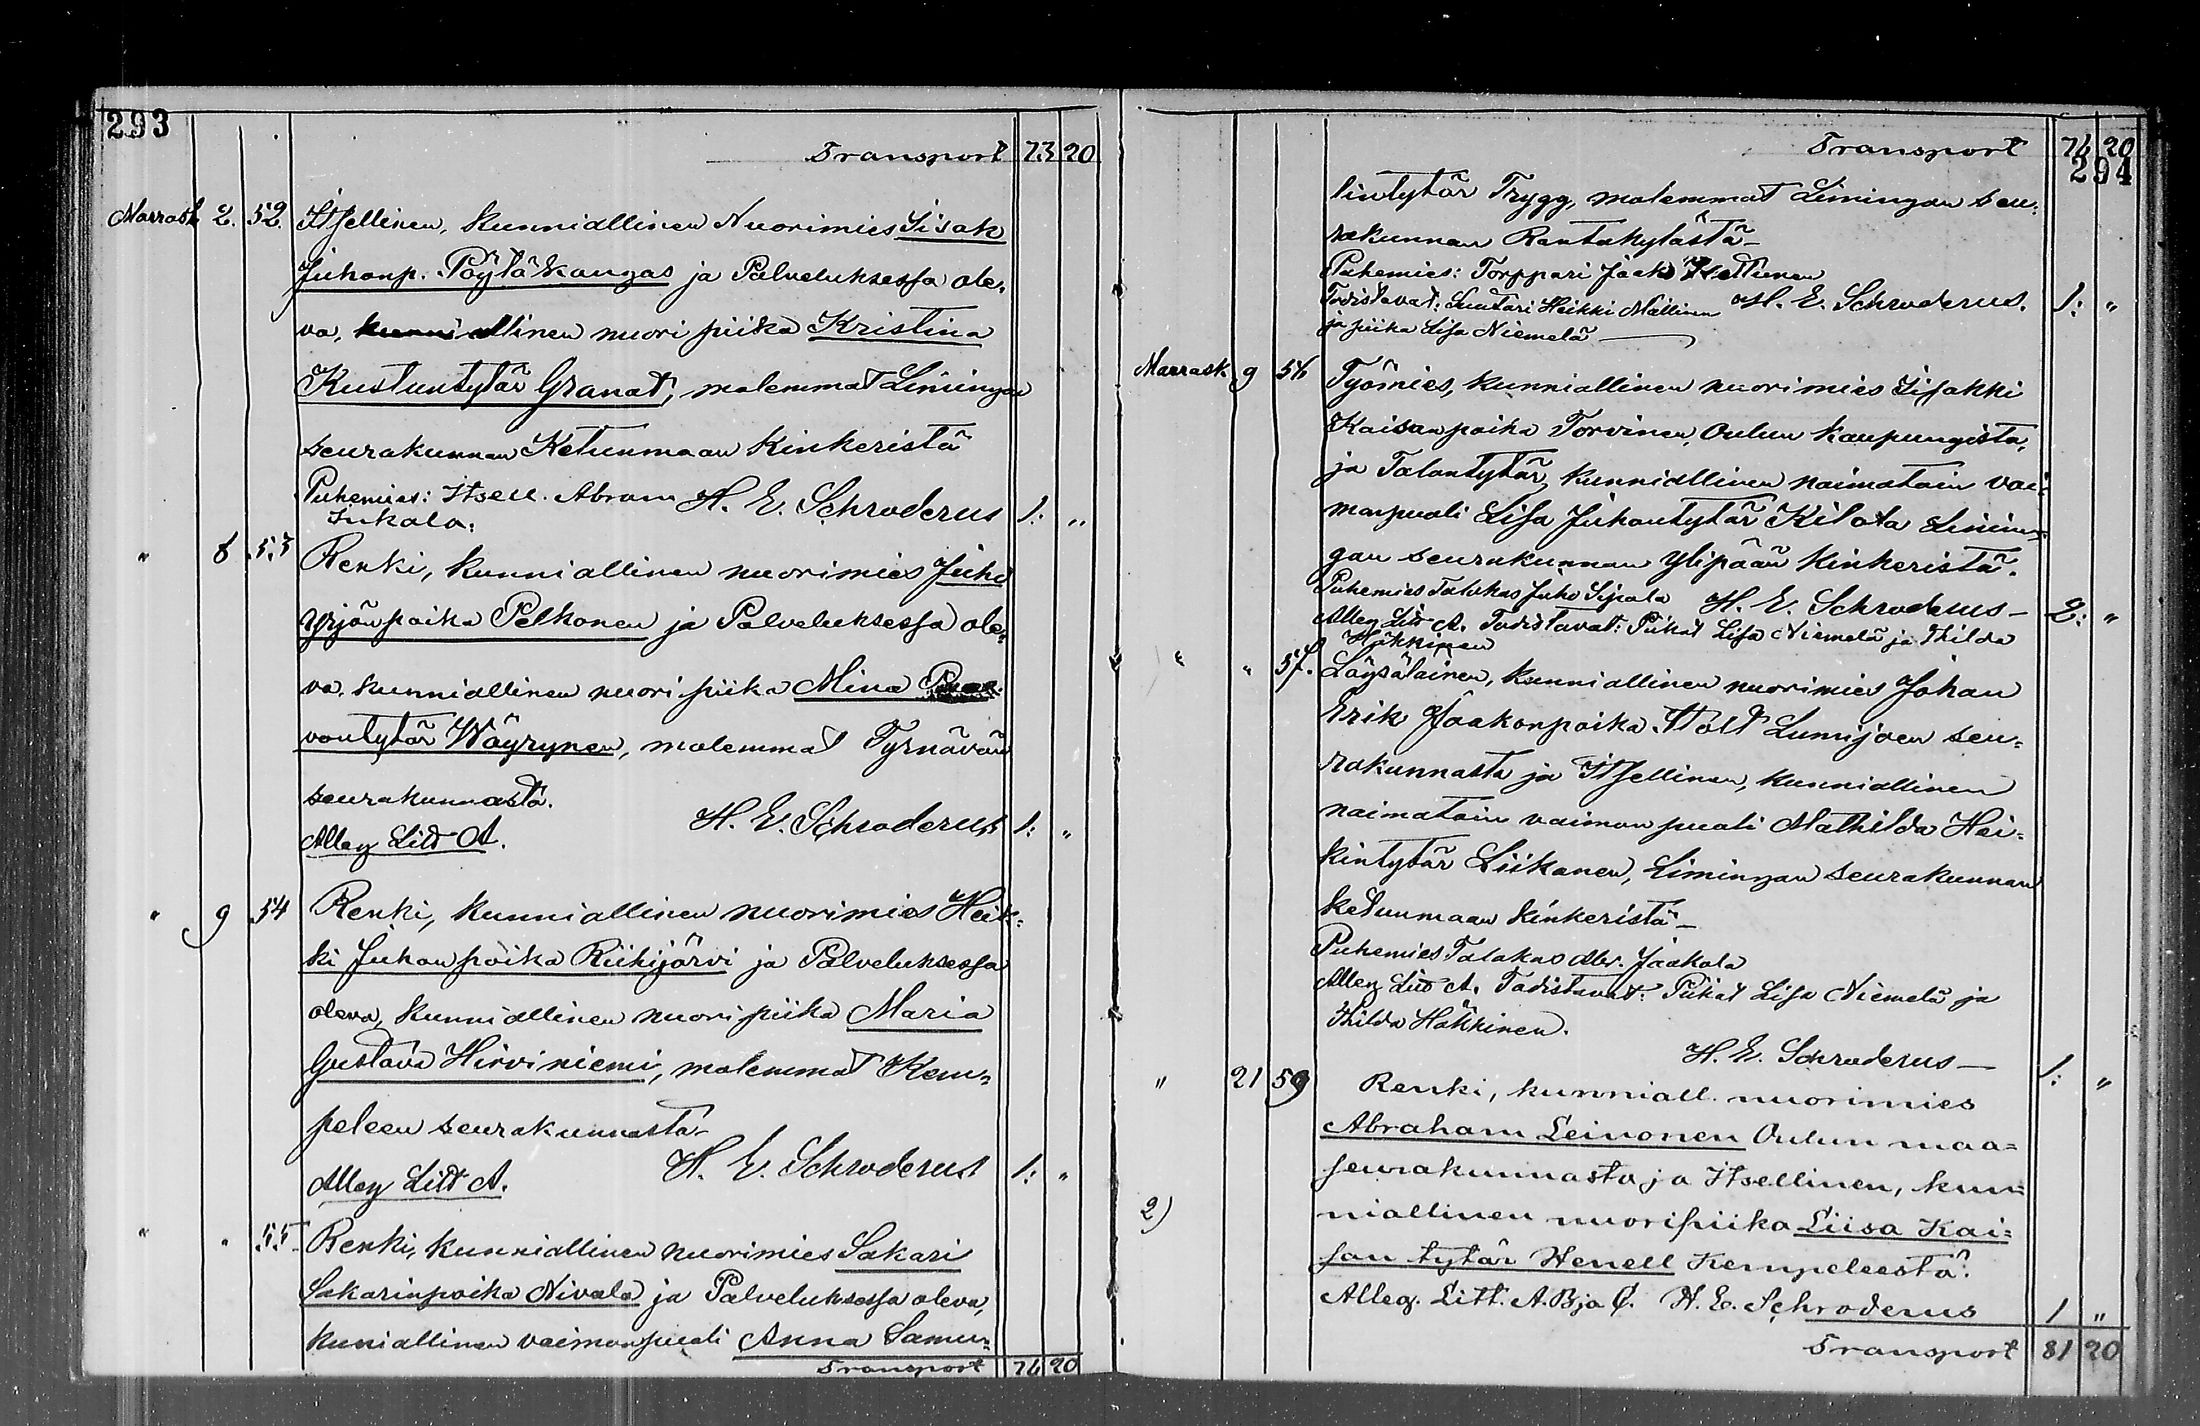 293
Transport 73 20
Marrask 2. 52. Itsellinen, kunniallinen Nuorimies Iisak
Juhonp. Pöytäkangas ja Palveluksessa ole-
va, kunniallinen nuori piika Kristina
Kustuntytär Granat, molemmat Limingan
seurakunnan Ketunmaan Kinkeristä
Puhemies: Itsell. Abram H. E. Schroderus 1: "
Inkala.
" 8 53 Renki, kunniallinen nuorimies Juho
Yrjönpoika Pelkonen ja Palveluksessa ole-
va, kunniallinen nuori piika Mina
vontytär Wäyrynen, molemmat Tyrnävän
seurakunnasta.
H. E. Schroderus 1: "
Alleg Litt A.
" 9 54 Renki, kunniallinen nuorimies Heik-
ki Juhonpoika Riihijärvi ja Palveluksessa
oleva, kunniallinen nuori piika Maria
Gustava Hirviniemi, molemmat Kem-
peleen seurakunnasta-
Alleg Litt A. H. E. Schroderus 1: "
" " 55 Renki, kunniallinen nuorimies Sakari
Sakarinpoika Nivala ja Palveluksessa oleva,
kuniallinen vaimonpuoli Anna Samu-
Transport 76 20
Transport 76 20
294
lintytär Trygg, molemmat Limingan seu-
rakunnan Rantakylästä-
Puhemies: Torppari Jaak
Todistavat: Suutari Heikki Mällinen H. E. Schroderus. 1: "
ja piika Lisa Niemelä
Marrask. 9 56 Työmies, kunniallinen nuorimies Iisakki
Kaisanpoika Torvinen, Oulun kaupungista,
ja Talontytär, kunniallinen naimatoin vai-
monpuoli Lisa Juhontytär Kilota Limin-
gan seurakunnan Ylipään Kinkeristä.
Puhemies Talokas Juho Sipola H. E. Schroderus- 2: "
Alleg Litt A. Todistavat: Piikat Lisa Niemelä ja Thilda
Häkkinen
" " 57. Läysäläinen, kunniallinen nuorimies Johan
Erik Jaakonpoika Stolt Lumijoen seu-
rakunnasta ja Itsellinen, kunniallinen
naimatoin vaimonpuoli Mathilda Hei-
kintytär Liikanen, Limingan seurakunnan
ketunmaan kinkeristä-
Puhemies Talokas Abr. Jaakola
Alleg Litt A. Todistavat: Piikat Lisa Niemelä ja
Thilda Häkkinen.
H. E. Schroderus- 1: "
" 21 59 Renki, kunniall. nuorimies
Abraham Leinonen Oulun maa-
seurakunnasta ja Itsellinen, kun-
2) niallinen nuoripiika Liisa Kai-
san tytär Henell Kempeleestä.
Alleg. Litt. A. B ja C. H. E. Schroderus 1 "
Transport 81 20